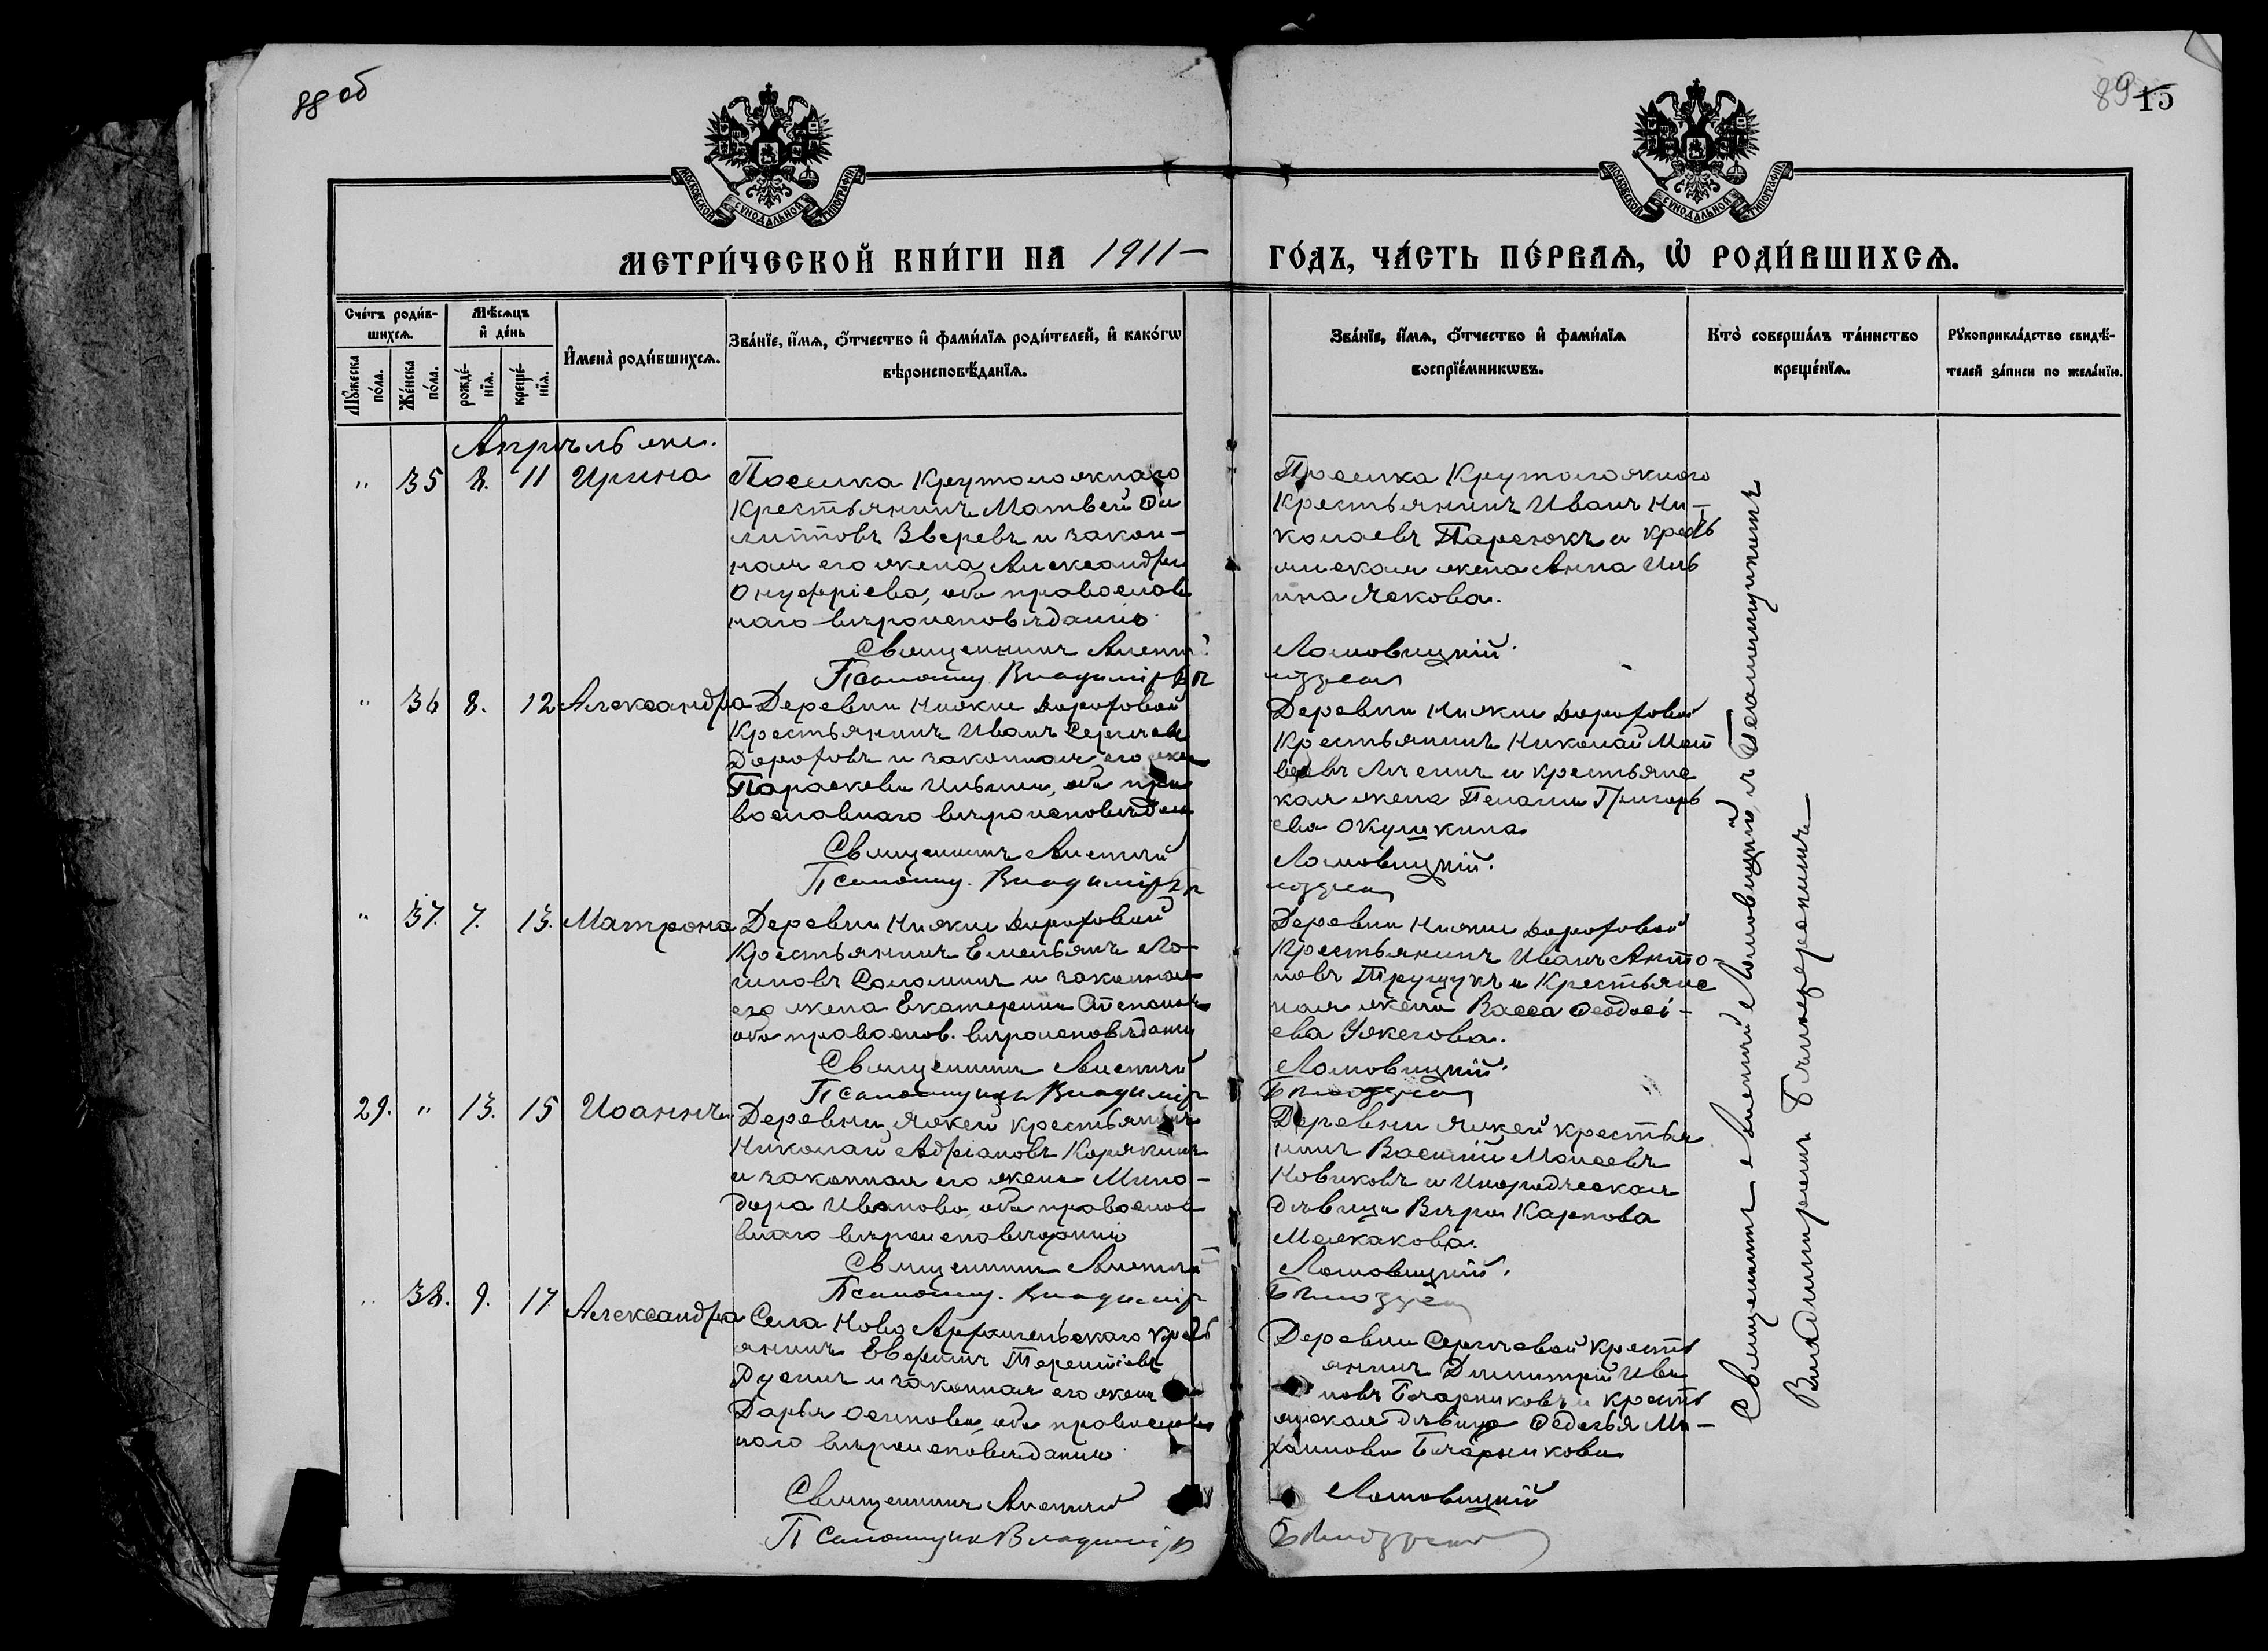 88 об
89 15
МОСКОВСКОЙ СУНОДАЛЬНОЙ ТИПОГРАФІИ
МОСКОВСКОЙ СУНОДАЛЬНОЙ ТИПОГРАФІИ
МЕТРИ́ЧЕСКОЙ КНИ́ГИ НА 1911 –
ГО́ДЪ, ЧА́СТЬ ПЕ́РВАѦ, Ѡ҆ РОДИ́ВШИХСѦ.
Сче́тъ роди́в-
шихсѧ.
Мꙋ́жеска по́ла.
Же́нска по́ла.
Мѣ́сѧцъ
и҆ де́нь
рожде́-
нїѧ.
креще́-
нїѧ.
И҆мена̀ роди́вшихсѧ.
Зва́нїе, и҆́мѧ, ѻ҆́тчество и҆ фами́лїѧ роди́телей, и҆ како́гѡ
вѣроисповѣ́данїѧ.
Зва́нїе, и҆́мѧ, ѻ҆́тчество и҆ фами́лїѧ
воспрїе́мникѡвъ.
Кто̀ соверша́лъ та́инство
креще́нїѧ.
Рꙋкоприкла́дство свидѣ́-
телей за́писи по жела́нїю.
Апрѣль мц.
" 35 8. 11 Ирина
Поселка Крутоложнаго
Крестьянинъ Матвей Фи
липповъ Зверевъ и закон-
ная его жена Александра
Онуфріева, оба православ
наго вѣроисповѣданія
Священникъ Алексій
Псаломщ. Владиміръ
Поселка Крутоложного
Крестьянинъ Иванъ Ни-
колаевъ Парсюкъ и кресть
янская жена Анна Иль
ина Яскова.
Ломовицкій.
" 36 8. 12 Александра
Деревни Нижне Дорофовой
Крестьянинъ Иванъ Сергѣев
Дорофовъ и законная его жена
Параскева Ильина, оба пра
вославнаго вѣроисповѣдан
Священникъ Алексій
Псаломщ. Владиміръ
Деревни Нижне Дорофовой
Крестьянинъ Николай Мат
веевъ и крестьянс
кая жена Пелагия Григорь
ева Окушкина
Ломовицкій.
" 37. 7. 13. Матрона
Деревни Нижне Дорофовой
Крестьянинъ Емельянъ Ло-
гиновъ Соломинъ и законная
его жена Екатерина Степанов
оба правослов. вѣроисповѣдания
Священникъ Алексій
Псаломщикъ Владиміръ
Деревни Нижне Дорофовой
Крестьянинъ Иванъ Анто-
новъ и Крестьянс
кая жена Васса Феодосі-
ева Ужегова.
Ломовицкій.
29. " 13. 15 Иоаннъ
Деревни крестьянинъ
Николай Адріановъ Корякинъ
и законная его жена Мино-
дора Иванова, оба православ
внаго вѣроисповѣдания
Священникъ Алексій
Псаломщ. Владиміръ
Деревни крестья
нинъ Василій Моисеевъ
Новиковъ и Инородческая
дѣвица Вѣра Карпова
Ломовицкій.
" 38. 9. 17 Александра
Села Ново Архангельскаго кресть
янинъ Евфимъ Терентіевъ
и законная его жена
Дарья Осипова, оба православ
наго вѣроисповѣдания
Священникъ Алексій
Псаломщик Владиміръ
Деревни Сергѣевой кресть
янинъ Димитрій Ива
новъ Бочарниковъ и кресть
янская дѣвица Федосья Ми-
хаилова Бочарникова
Ломовицкій
Священникъ Алексий Ломовицкий съ Псаломщикомъ
Владимиромъ